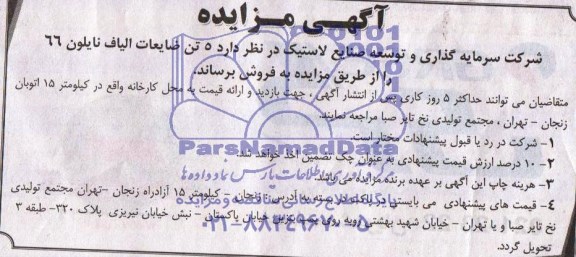 آگهی مزایده
شرکت سرمایه گذاری و توسعه صنایع لاستیک در نظر دارد ۵ تن ضایعات الیاف نایلون ۶۶
را از طریق مزایده به فروش برساند.
متقاضیان می توانند حداکثر ۵ روز کاری پس از انتشار آگهی ، جهت بازدید و ارائه قیمت به محل کارخانه واقع در کیلومتر ۱۵ اتوبان
زنجان - تهران ، مجتمع تولیدی نخ تایر صبا مراجعه نمایند.
۱- شرکت در رد یا قبول پیشنهادات مختار است.
۲- ۱۰ درصد ارزش قیمت پیشنهادی به عنوان چک تضمین اخذ خواهد شد.
۳- هزینه چاپ این آگهی بر عهده برنده مزایده می باشد.
۴- قیمت های پیشنهادی می بایستی در پاکت در بسته به آدرس : زنجان - کیلومتر ۱۵ آزادراه زنجان -تهران مجتمع تولیدی
نخ تایر صبا و یا تهران - خیابان شهید بهشتی روبه روی پمپ بنزین خیابان پاکستان - نبش خیابان تبریزی پلاک ۳۲۰- طبقه ۳
تحویل گردد.
ParsNamadData
۰۲۱-۸۸۳۴۹۶۷۰-۵